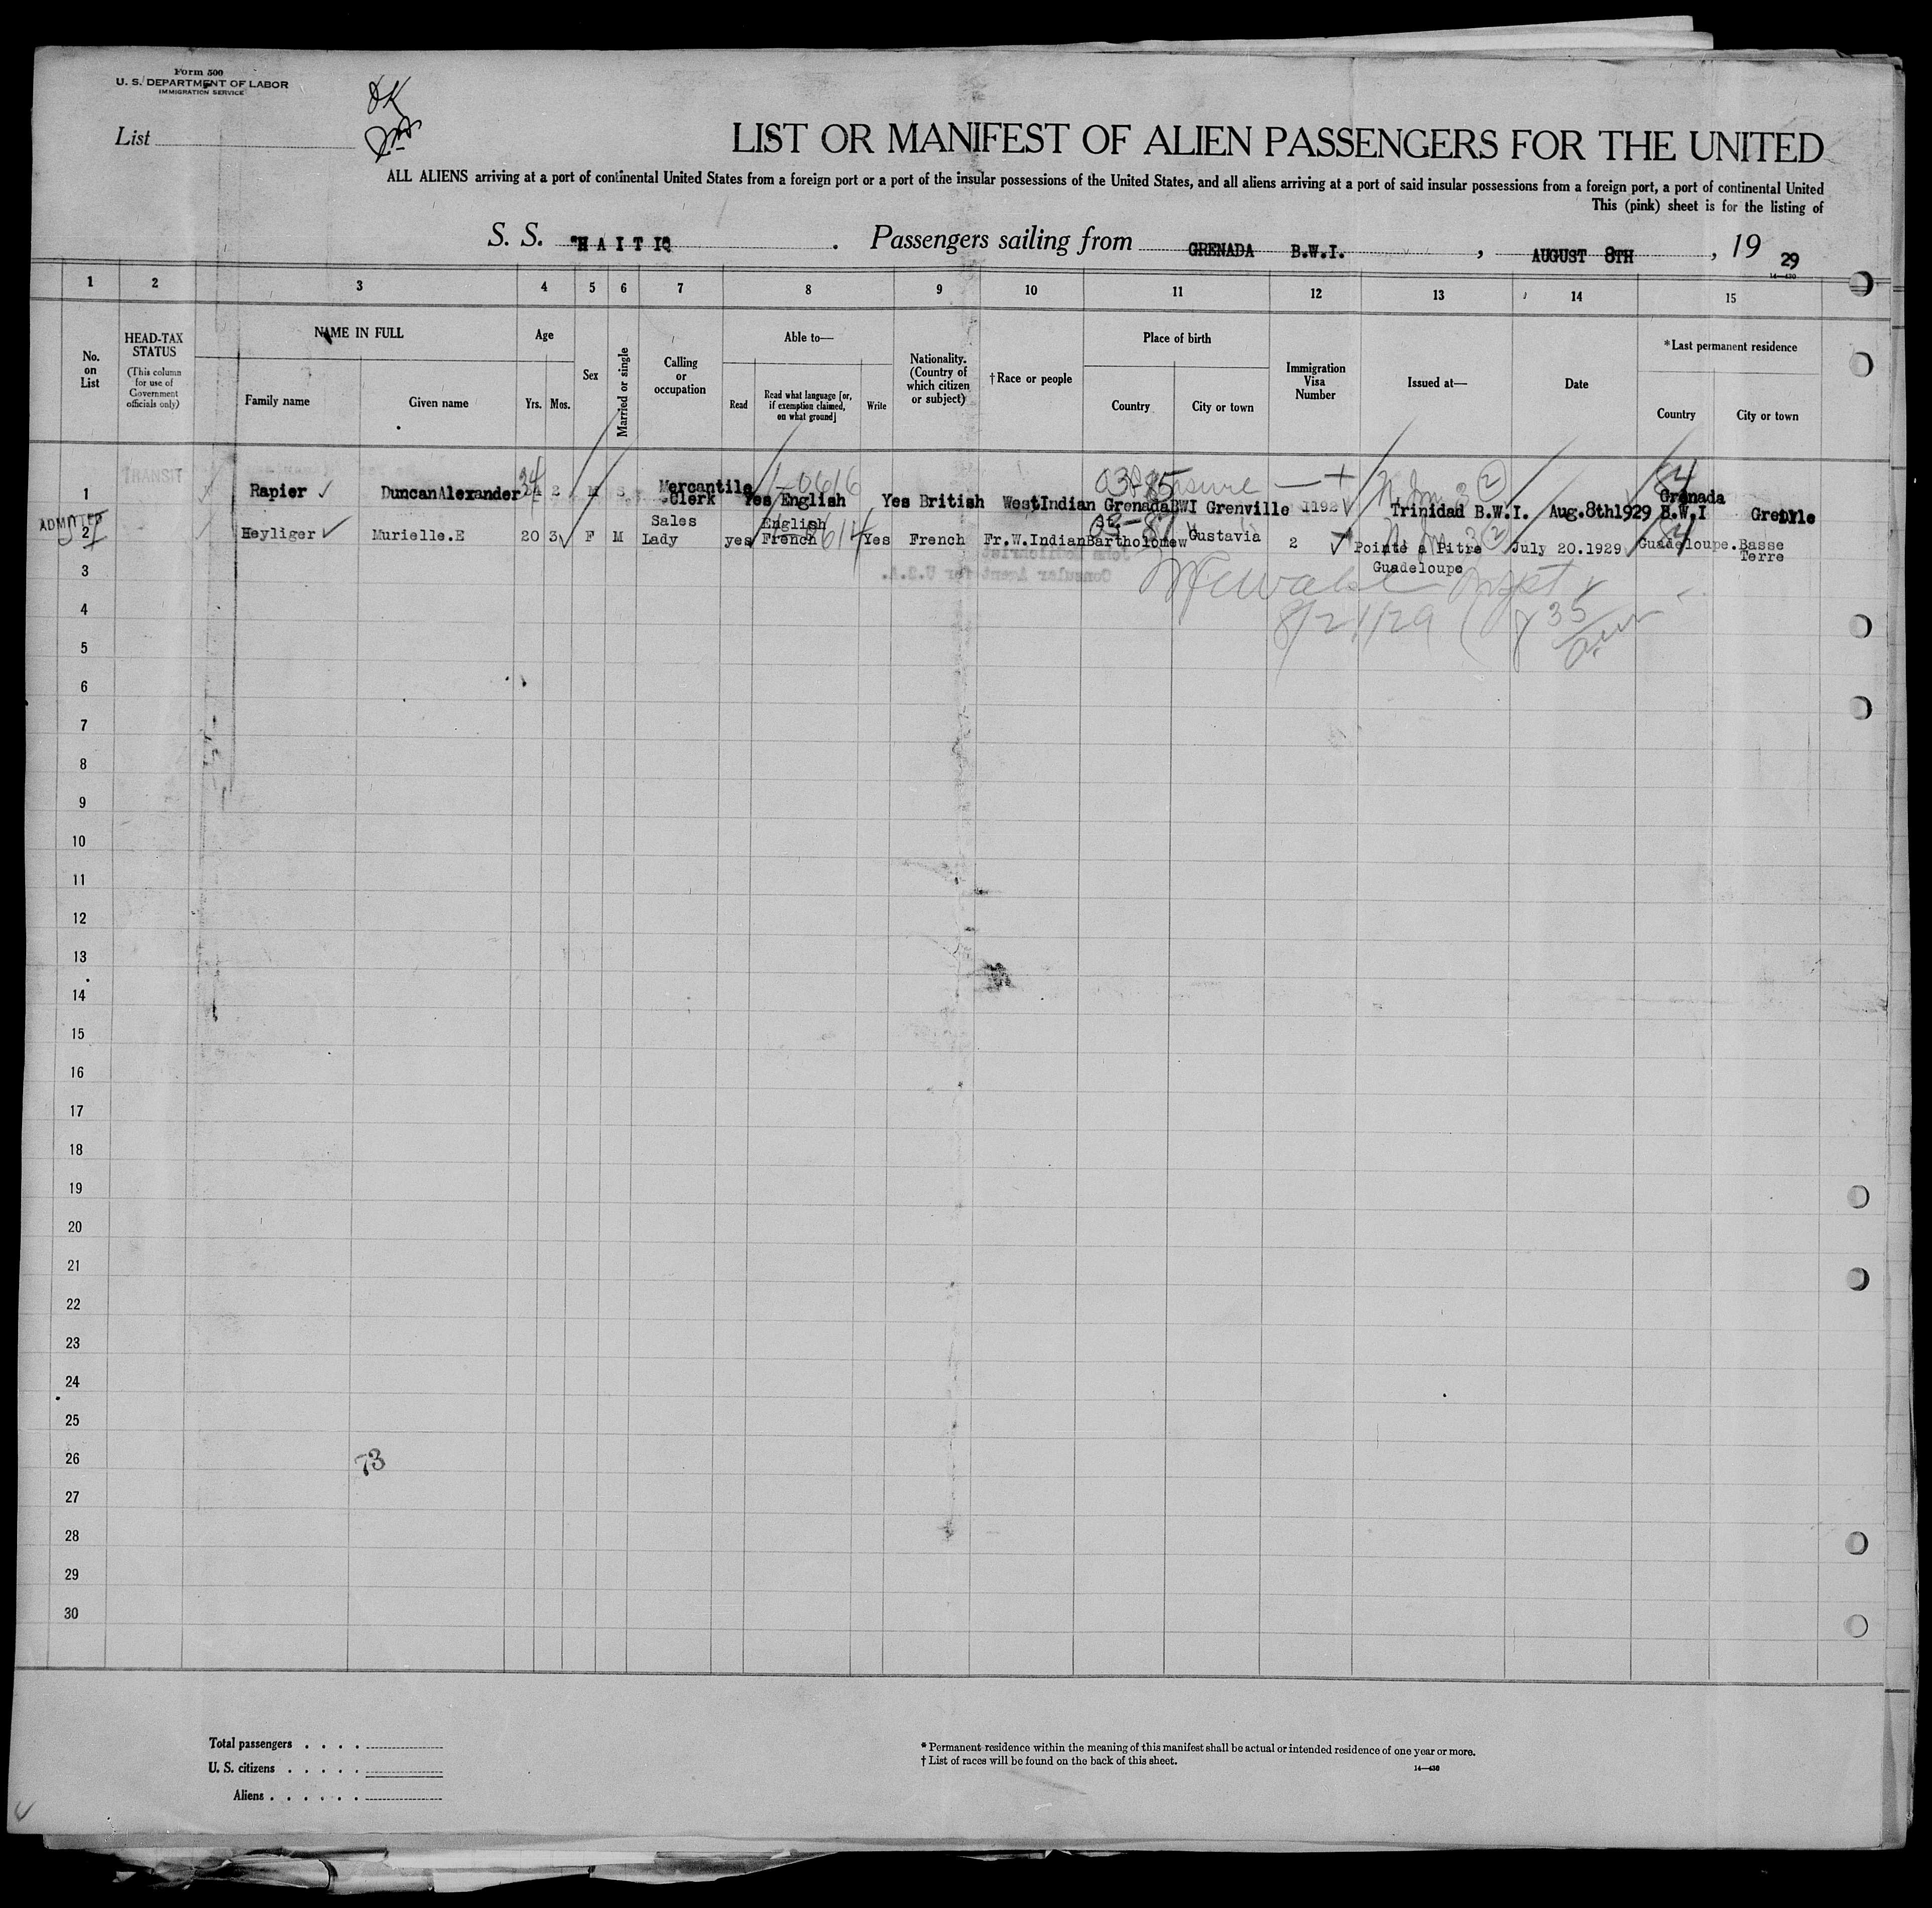 Form 500
U. S. DEPARTMENT OF LABOR
IMMIGRATION SERVICE
OK
List
LIST OR MANIFEST OF ALIEN PASSENGERS FOR THE UNITED
ALL ALIENS arriving at a port of continental United States from a foreign port or a port of the insular possessions of the United States, and all aliens arriving at a port of said insular possessions from a foreign port, a port of continental United
This (pink) sheet is for the listing of
S. S. "HAITI" . Passengers sailing from GRENADA B.W.I. , AUGUST 8TH , 19 29
14—430
1 2 3 4 5 6 7 8 9 10 11 12 13 14 15
No. on List
HEAD-TAX STATUS
(This column for use of Government officials only)
NAME IN FULL
Family name Given name
Age
Yrs. Mos.
Sex
Married or single
Calling or occupation
Able to—
Read
Read what language [or, if exemption claimed, on what ground]
Write
Nationality. (Country of which citizen or subject)
†Race or people
Place of birth
Country City or town
Immigration Visa Number
Issued at—
Date
*Last permanent residence
Country City or town
TRANSIT
1 Rapier ✓ Duncan Alexander 34 2 M S Mercantile Clerk Yes English Yes British West Indian Grenada BWI Grenville 1192 Trinidad B.W.I. Aug.8th1929 Grenada B.W.I
0616
03-85
84
ADMITTED
2 Heyliger ✓ Murielle.E 20 3 F M Sales Lady yes English French Yes French Fr.W.Indian St. Bartholomew Gustavia 2 Pointe a Pitre Guadeloupe July 20.1929 Guadeloupe. Basse Terre
84
Consular Agent for U.S.A.
8/21/29
35
3
4
5
6
7
8
9
10
11
12
13
14
15
16
17
18
19
20
21
22
23
24
25
26
73
27
28
29
30
Total passengers . . . .
U. S. citizens . . . . .
Aliens . . . . . .
* Permanent residence within the meaning of this manifest shall be actual or intended residence of one year or more.
† List of races will be found on the back of this sheet.
14—430